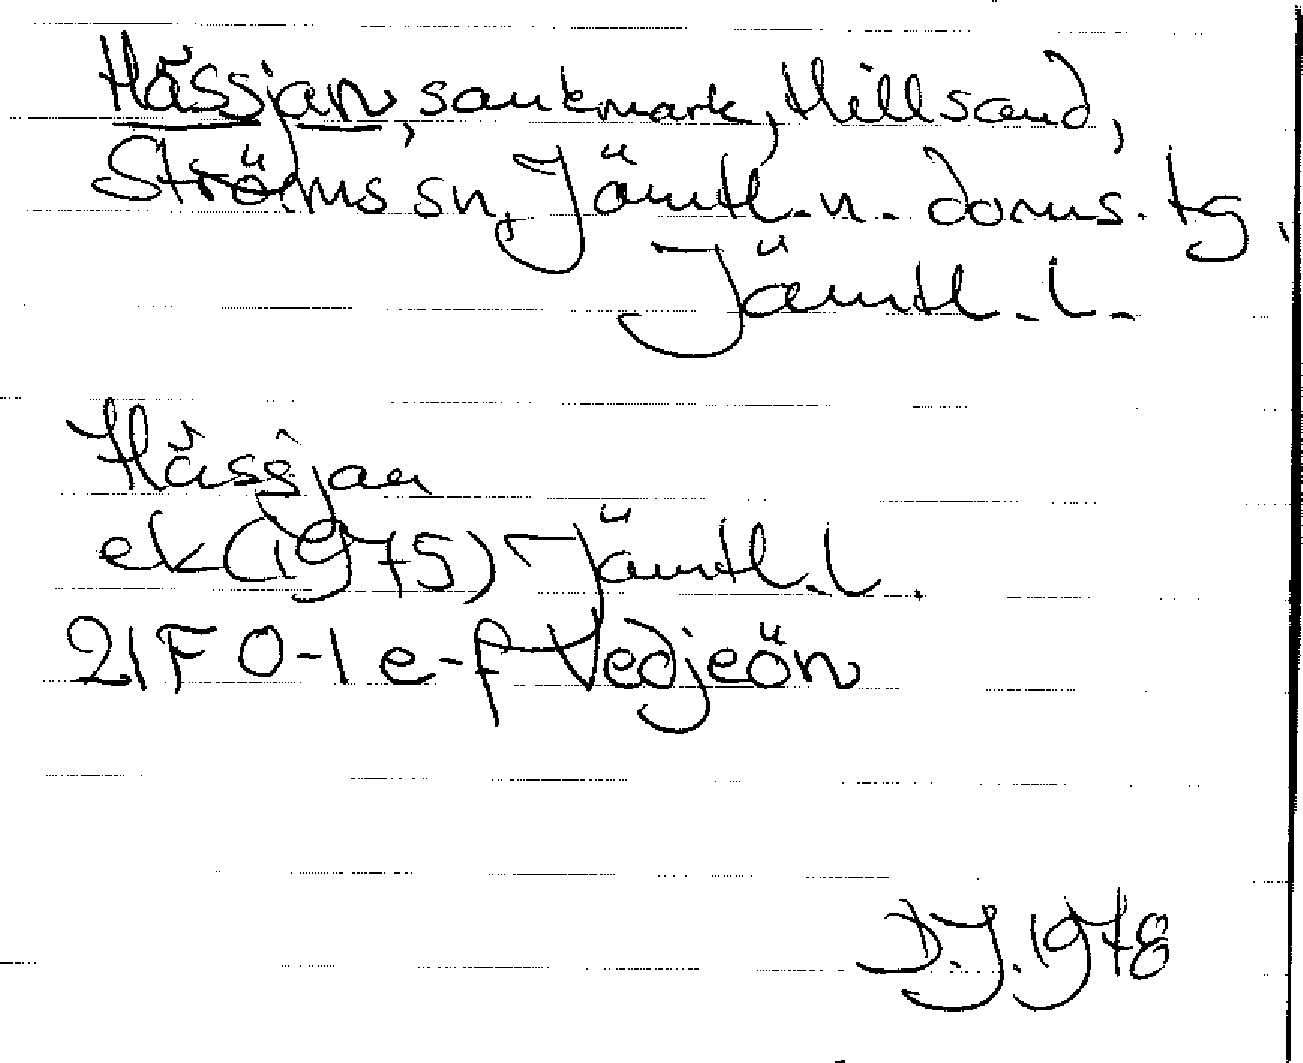 Hässjan, sankmark, Hillsand,
Ströms sn, Jämtl. n. doms. tg,
Jämtl. l.
Hässjan
ek (1975) Jämtl. l.
21F 0-1 e-f Vedjeön
D.J. 1978